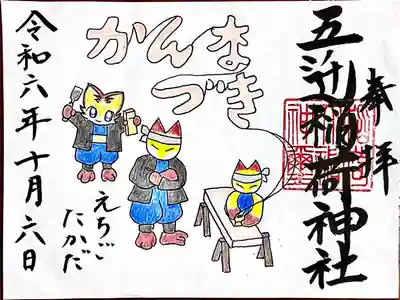 奉拝
五辻稲荷神社
かんな
づき
えちご
たかだ
令和六年十月六日